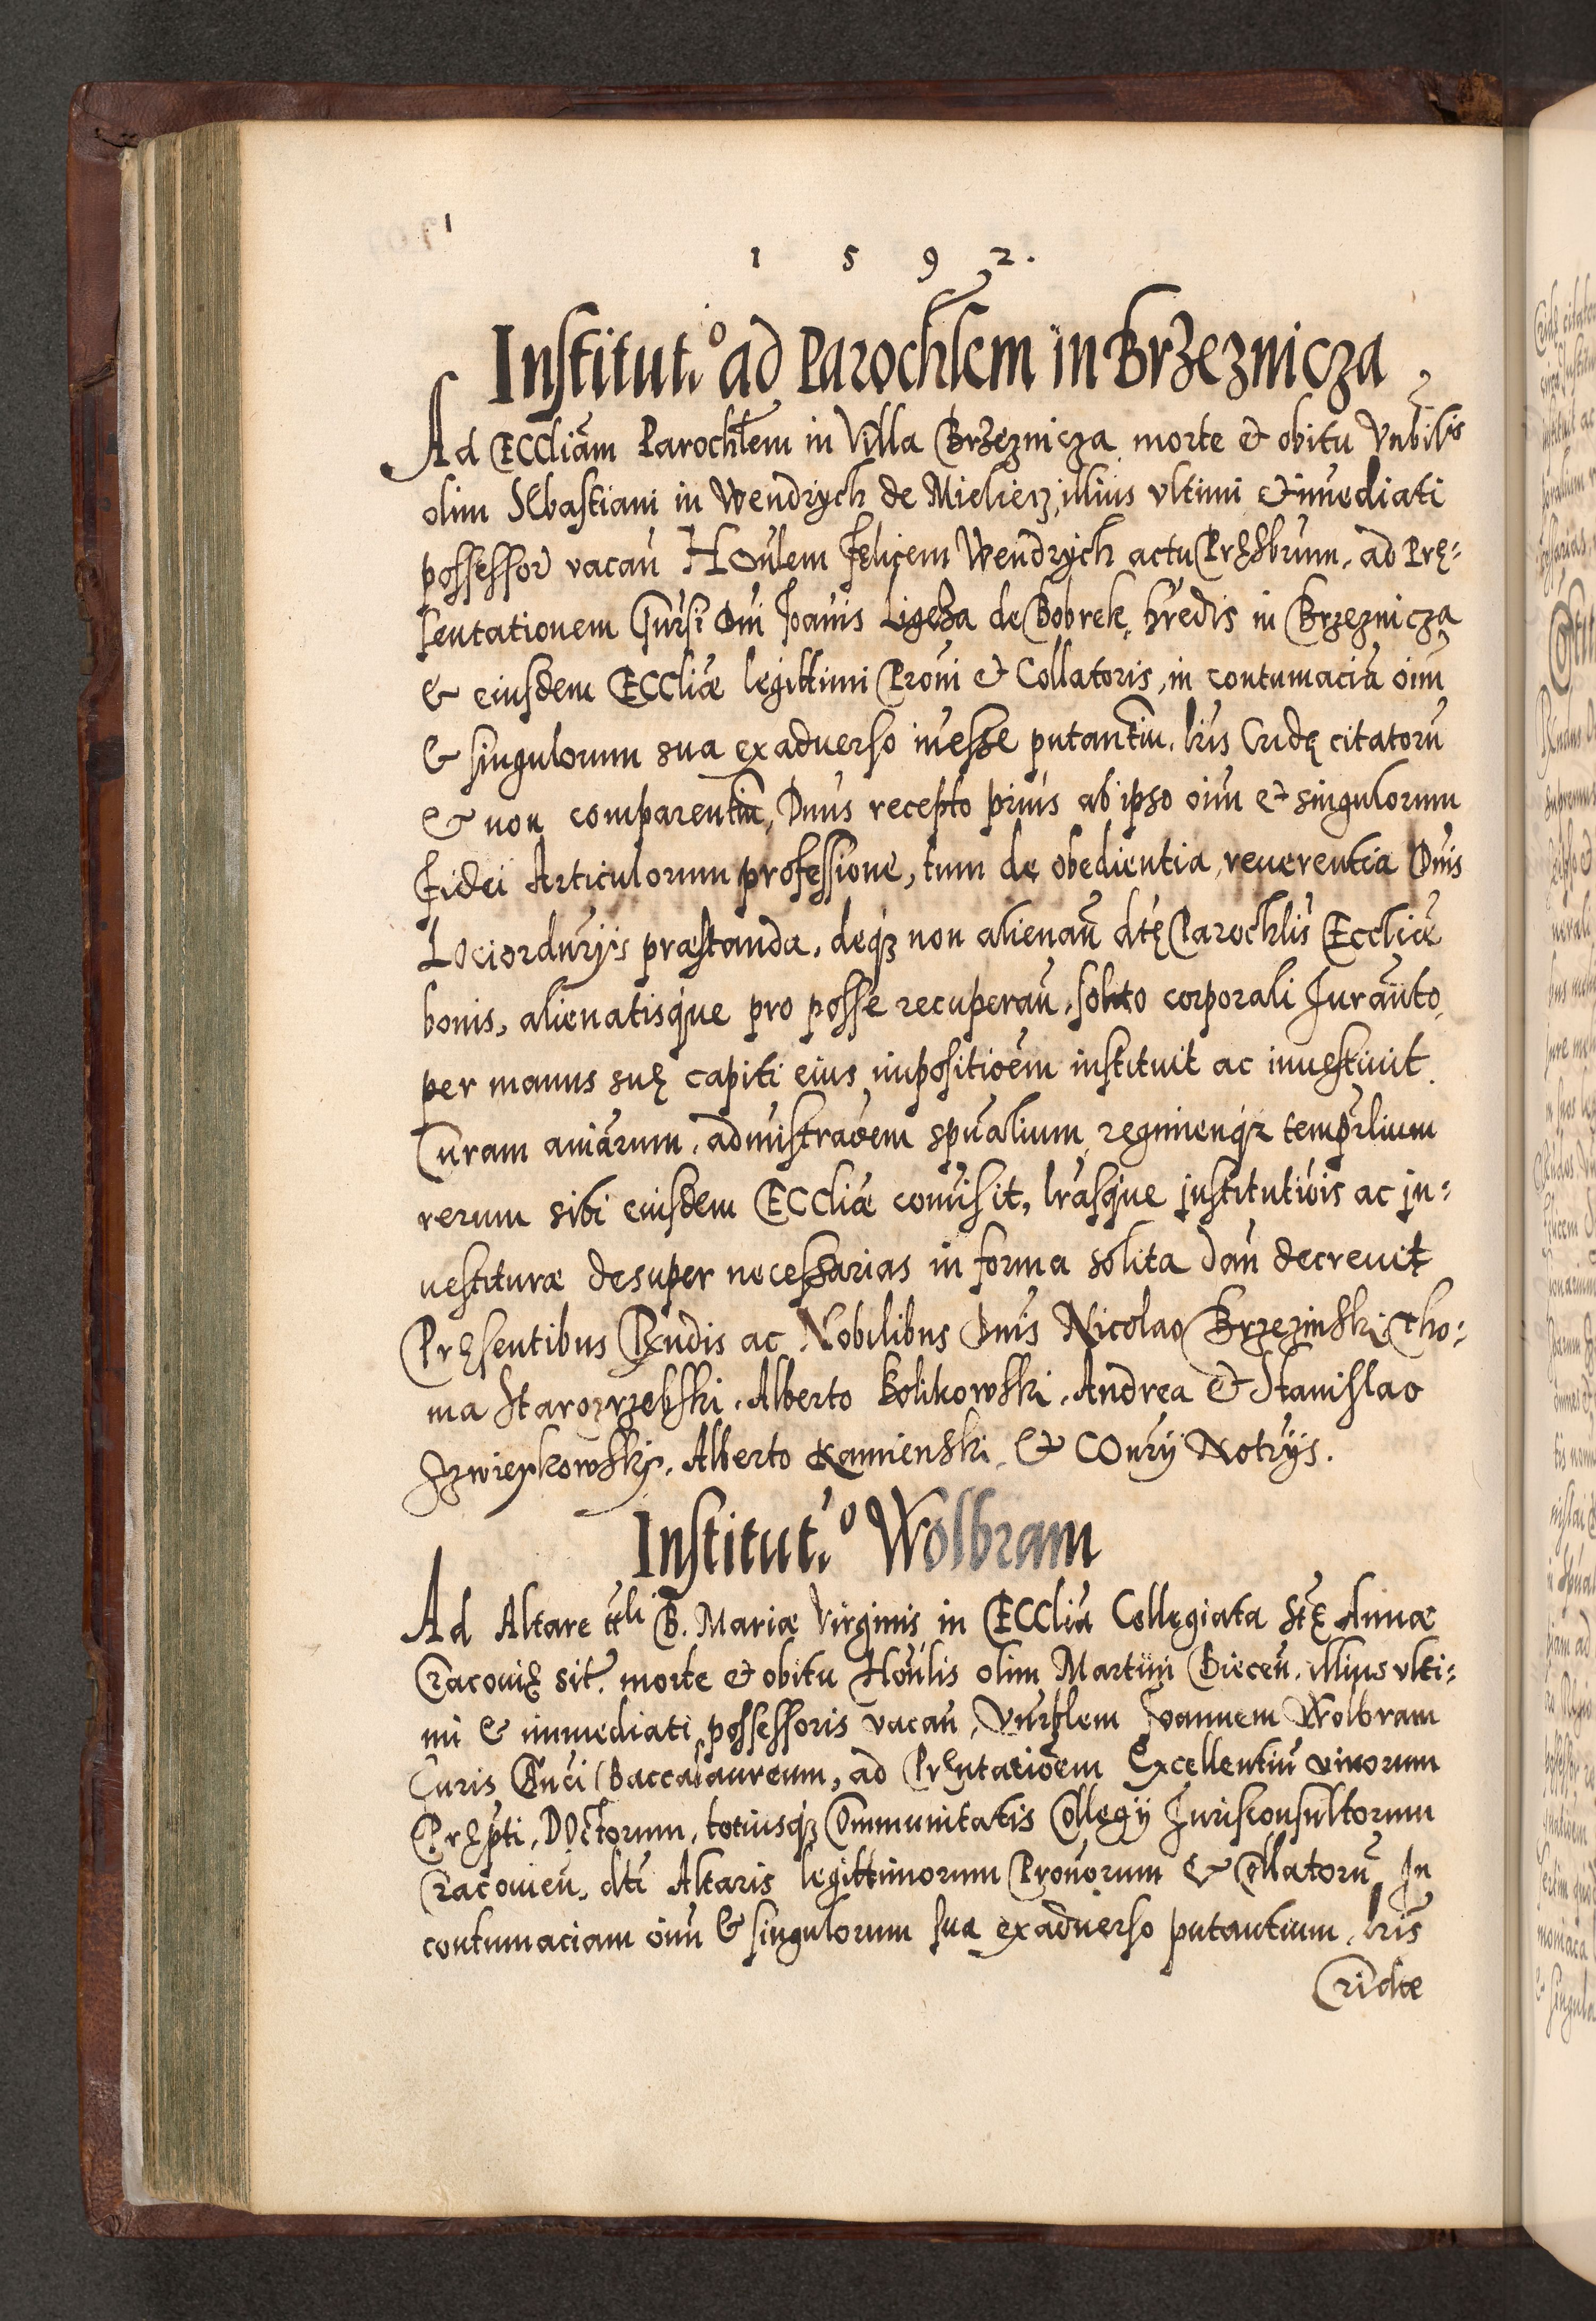 1 5 9 2.
Institutio ad Parochlem in Brzeznicza
Ad Eccliam Parochlem in Villa Brzeznicza morte et obitu Vnbilis
olim Sebastiani in Wendrych de Mielierz, illius vltimi et imediati
possessor vacan Honlem Felicem Wendrych actu Pręsbrum, ad Prę=
sentationem Dni Joanis Ligęza de Bobrek, hredis in Brzeznicza
& eiusdem Eccliæ legittimi Proni et Collatoris, in contumacia oim
& singulorum sua ex aduerso inesse putantiu. lris Cridę citatoru
& non comparentiu, Dnus recepto prius ab ipso oim et singulorum
Fidei Articulorum professione, tum de obedientia, reuerentia Dnis
Lociordnrijs præstanda, deqz non alienan dtę Parochlis Eccliæ
bonis, alienatisque pro posse recuperan, solito corporali Juranto
per manus suę capiti eius impositioem instituit ac inuestiuit.
Curam aniarum, admistraoem spualium, regimenqz temprlium
rerum sibi eiusdem Eccliæ comisit, lrasque jnstitutiois ac jn=
uestituræ desuper necessarias in forma solita dan decreuit
Pręsentibus Rndis ac Nobilibus Dnis Nicolao Brzezinski, Tho=
ma Staroprzebski, Alberto Bolikowski, Andrea et Stanislao
Alberto Kamienski, & Conrij Notrijs.
Institutio Wolbram
Ad Altare ttli B. Mariæ Virginis in Ecclia Collegiata Stę Annæ
Cracouię sit. morte et obitu Honlis olim Martini Biecen. illius vlti=
mi & immediati possessoris vacan, Joannem Wolbram
Juris Baccalaureum, ad Pręntatioem Excellentiu virorum
Prępti, Doctorum, totiusqz Communitatis Collegij Jurisconsultorum
Cracouien, dti Altaris legittimorum Pronorum & Collatoru, In
contumaciam oim & singulorum sua ex aduerso putantium, lris
Cridæ